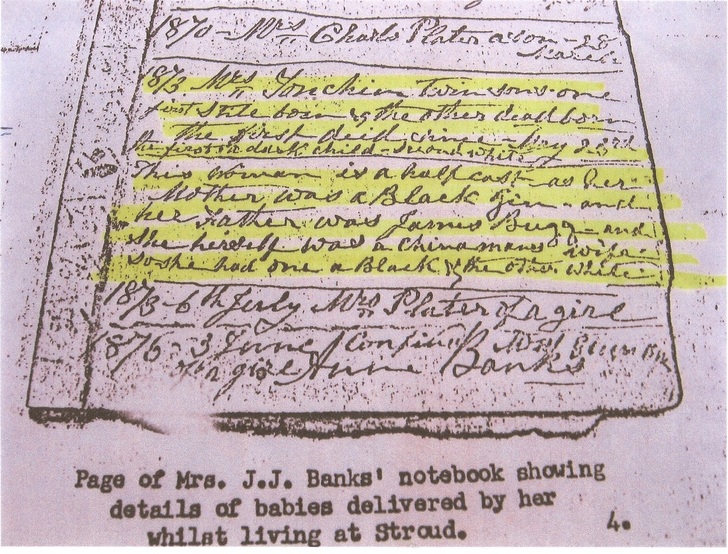 1870 - Mrs Charls Plater a son - 28
March
1873 Mrs Tonchin twin sons - one
first stile born & the other dead born
the first died since - May 23rd
the first a dark child - second white
This Woman is a half cast as her
Mother was a Black Gin - and
her Father was James Bugg - and
She herself was a Chinamans wife
So she had one a Black & the other white
1873 - 6th July Mrs Plater of a girl
1876 - 3 June / Confin
a girl Anne Banks
Page of Mrs. J.J. Banks' notebook showing
details of babies delivered by her
whilst living at Stroud.
4.